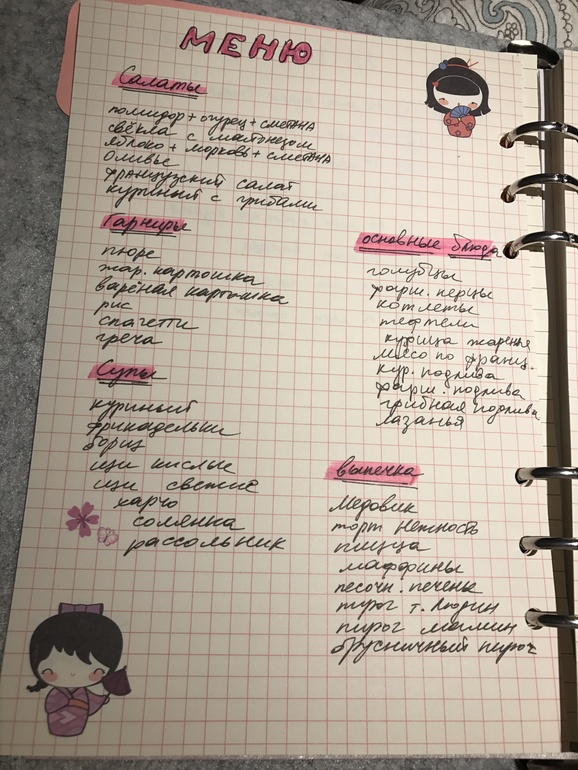 МЕНЮ
Салаты
помидор + огурец + сметана
свёкла с майонезом
яблоко + морковь + сметана
Оливье
французский салат
куриный с грибами
Гарниры
пюре
жар. картошка
варёная картошка
рис
спагетти
греча
Супы
куриный
фрикадельки
борщ
щи кислые
щи свежие
харчо
солянка
рассольник
основные блюда
голубцы
фарш. перцы
котлеты
тефтели
курица жареная
мясо по франц.
кур. подлива
фарш. подлива
грибная подлива
лазанья
выпечка
Медовик
торт Нежность
пицца
маффины
песочн. печенье
пирог т. Людин
пирог мамин
брусничный пирог